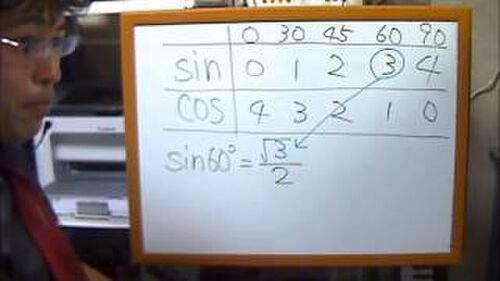 0 30 45 60 90
sin 0 1 2 3 4
cos 4 3 2 1 0
sin60° = √3/2